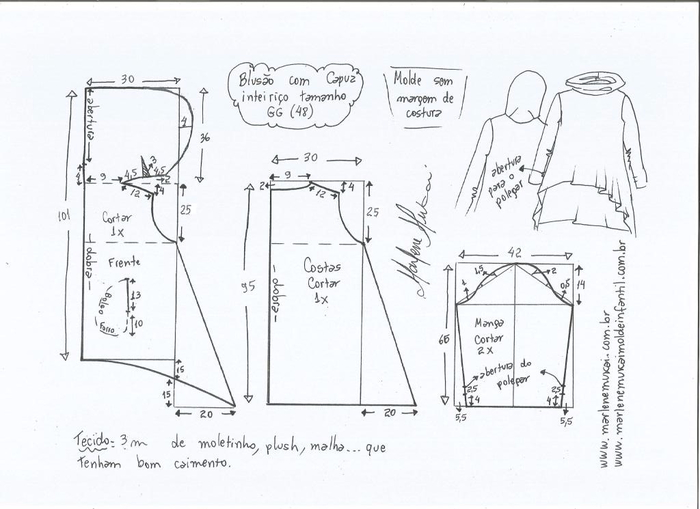 Blusão com Capuz
inteiriço tamanho
GG (48)
Molde sem
margem de
costura
30
abertura
4
36
3
9
4,5
4,5
2
12
4
101
25
Cortar
1x
dobra
Frente
Bolso
Forro
13
10
15
15
20
30
9
2
12
4
25
95
Costas
Cortar
1x
dobra
20
Marlene Mukai
abertura
para o
polegar
42
1,5
2
1
0,5
14
65
Manga
Cortar
2x
abertura do
polegar
2,5
2,5
4
4
5,5
5,5
www.marlenemukai.com.br
www.marlenemukaimoldeinfantil.com.br
Tecido: 3m de moletinho, plush, malha... que
tenham bom caimento.